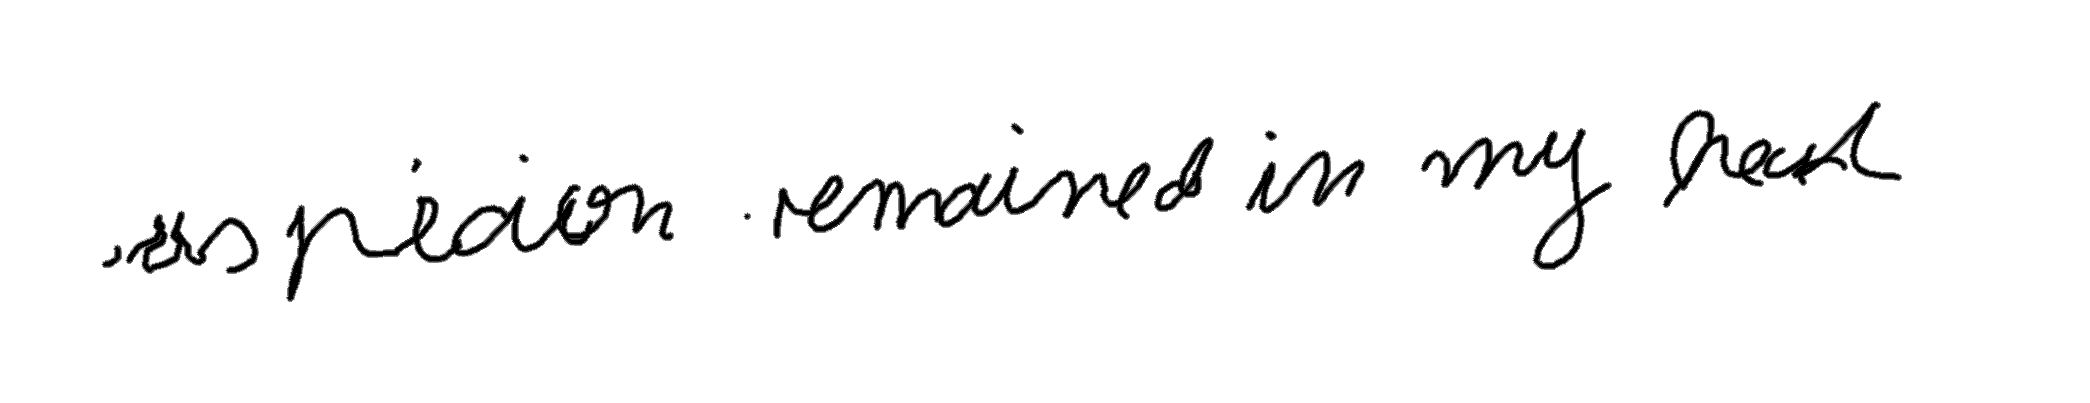 suspicion remained in my head